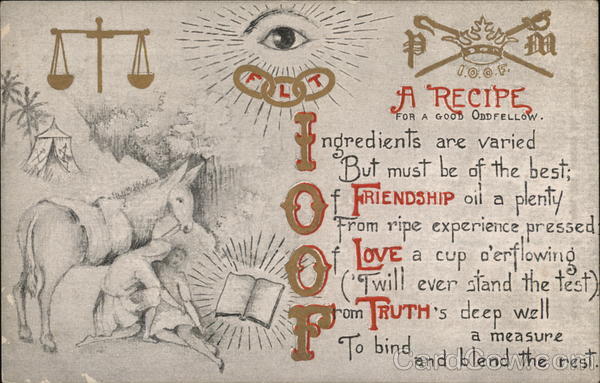 P M
I.O.O.F.
F L T
A RECIPE
FOR A GOOD ODDFELLOW.
Ingredients are varied
But must be of the best;
Of FRIENDSHIP oil a plenty
From ripe experience pressed
Of LOVE a cup o'erflowing
('Twill ever stand the test)
From TRUTH'S deep well
a measure
To bind and blend the rest.
CardCow.com